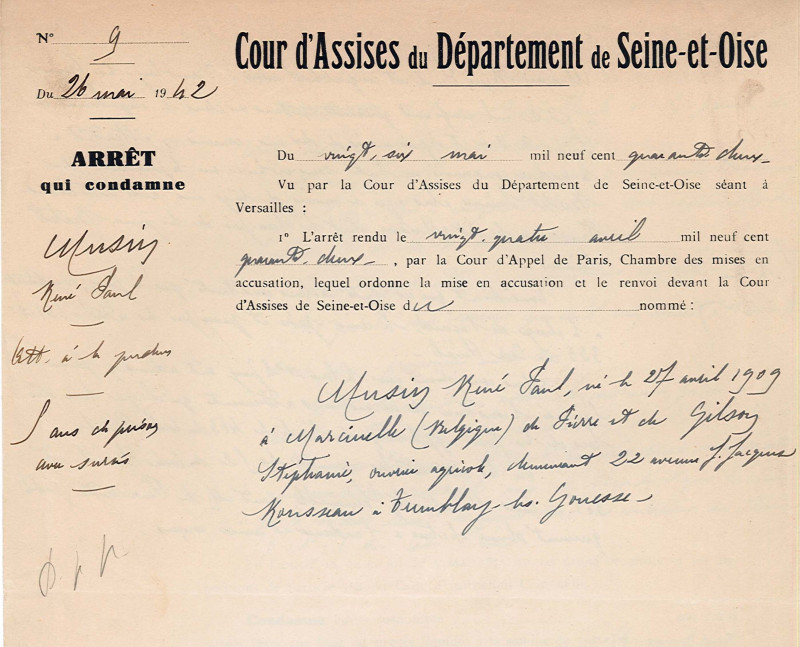 N° 9
Du 26 mai 1942
ARRÊT
qui condamne
Musin
René Paul
Att. à la pudeur
5 ans de prison
avec sursis
Cour d'Assises du Département de Seine-et-Oise
Du vingt-six mai mil neuf cent quarante deux-
Vu par la Cour d'Assises du Département de Seine-et-Oise séant à
Versailles :
1° L'arrêt rendu le vingt-quatre avril mil neuf cent
quarante-deux- , par la Cour d'Appel de Paris, Chambre des mises en
accusation, lequel ordonne la mise en accusation et le renvoi devant la Cour
d'Assises de Seine-et-Oise du nommé :
Musin René Paul, né le 27 avril 1909
à Marcinelle (Belgique) de Pierre et de Gilson
Stéphanie, ouvrier agricole, demeurant 22 avenue J. Jacques
Rousseau à Tremblay-les-Gonesse-